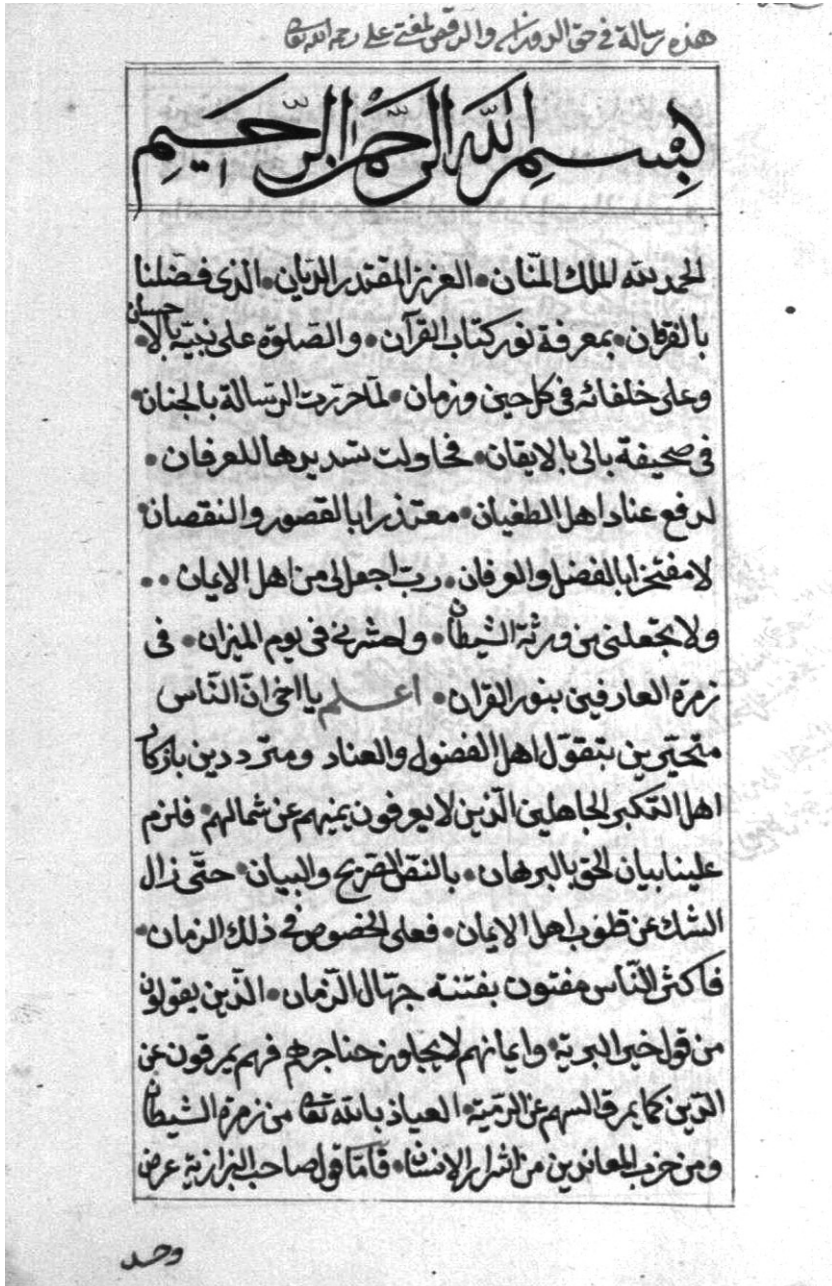 هذه رسالة في حق الدوران والرقص لمفتى على رحمه الله تعالى
بسم الله الرحمن الرحيم
الحمد لله الملك المنّان العزيز المقتدر الديّان الذى فضّلنا
بالفرقان بمعرفة نور كتاب القرآن والصّلوة على نبيّه بالاحسان
وعلى خلفائه فى كل حين وزمان لمّا حرّرت الرّسالة بالجنان
فى صحيفة بالى بالايقان فحاولت تسديدها للعرفان
لدفع عناد اهل الطغيان معتذرا بالقصور والنقصان
لا مفتخرا بالفضل والعرفان ربّ اجعلنى من اهل الايمان
ولا تجعلنى من ورثة الشيطان واحشرنى فى يوم الميزان فى
زمرة العارفين بنور القران اعلم يا اخى انّ النّاس
متحيّرين بتقوّل اهل الفضول والعناد ومتردّدين
اهل التكبر الجاهلين الّذين لا يعرفون يمينهم عن شمالهم فلزم
علينا بيان الحق بالبرهان بالنقل الصّريح والبيان حتّى زال
الشك عن قلوب اهل الايمان فعلى الخصوص فى ذلك الزمان
فاكثر النّاس مفتون بفتنة جهّال الزّمان الّذين يقولون
من قول خير البريّة وايمانهم لا يجاوز حناجرهم فهم يمرقون عن
الدّين كما يمرق السهم عن الرّميّة العياذ بالله تعالى من زمرة الشيطان
ومن حزب المعاندين من اشرار الانسان فامّا قول صاحب البزازية عرض
وحد